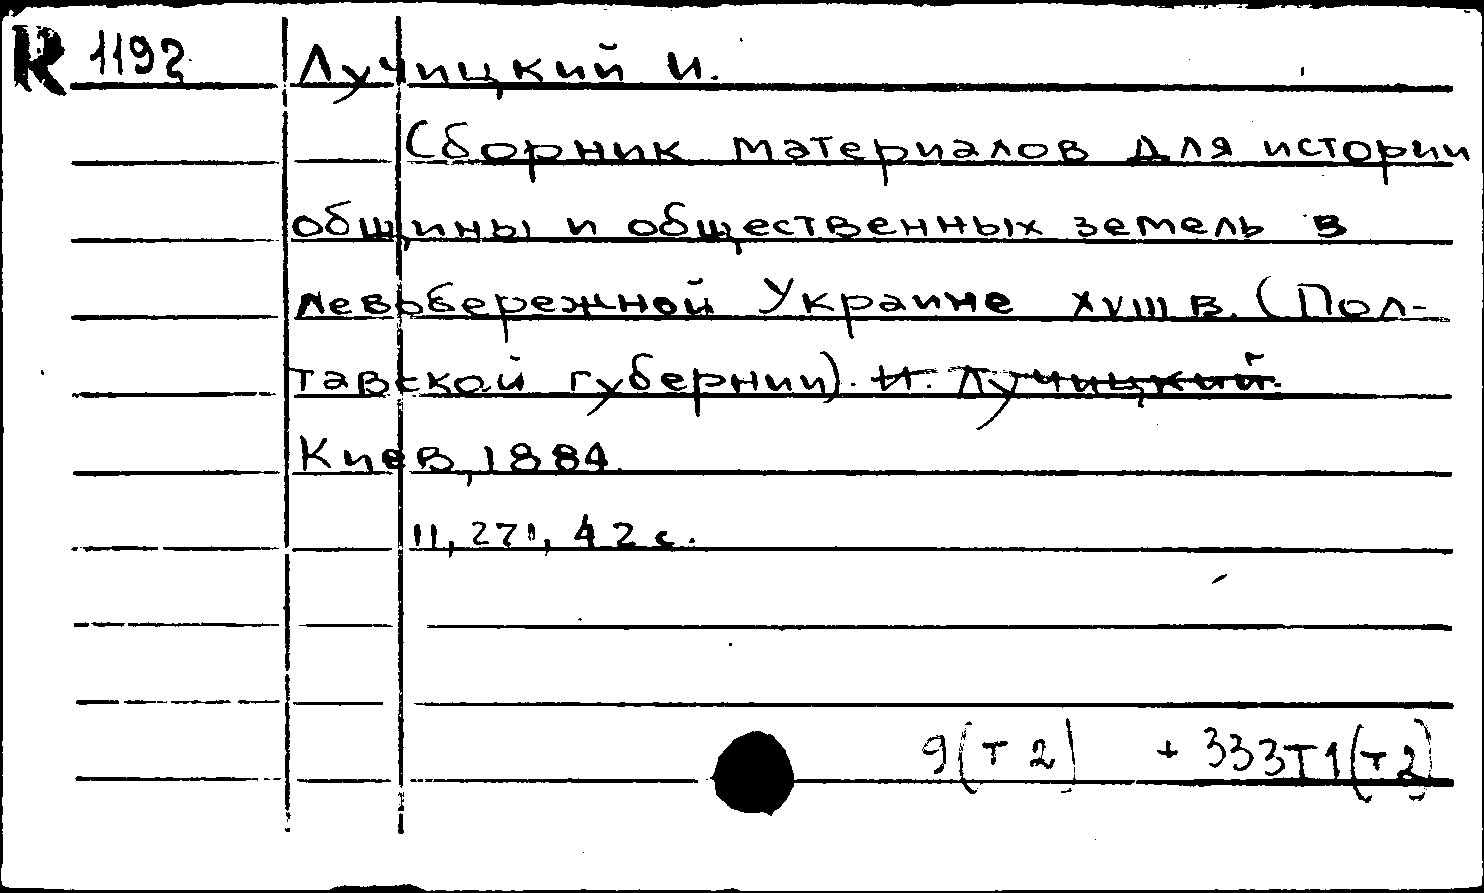 R 1192 Лучицкий И.
Сборник материалов для истории
общины и общественных земель в
левобережной Украине XVIII в. (Пол-
тавской губернии). И. Лучицкий.
Киев, 1884.
II, 271, 42 с.
9(т2) + 333Т1(т2)